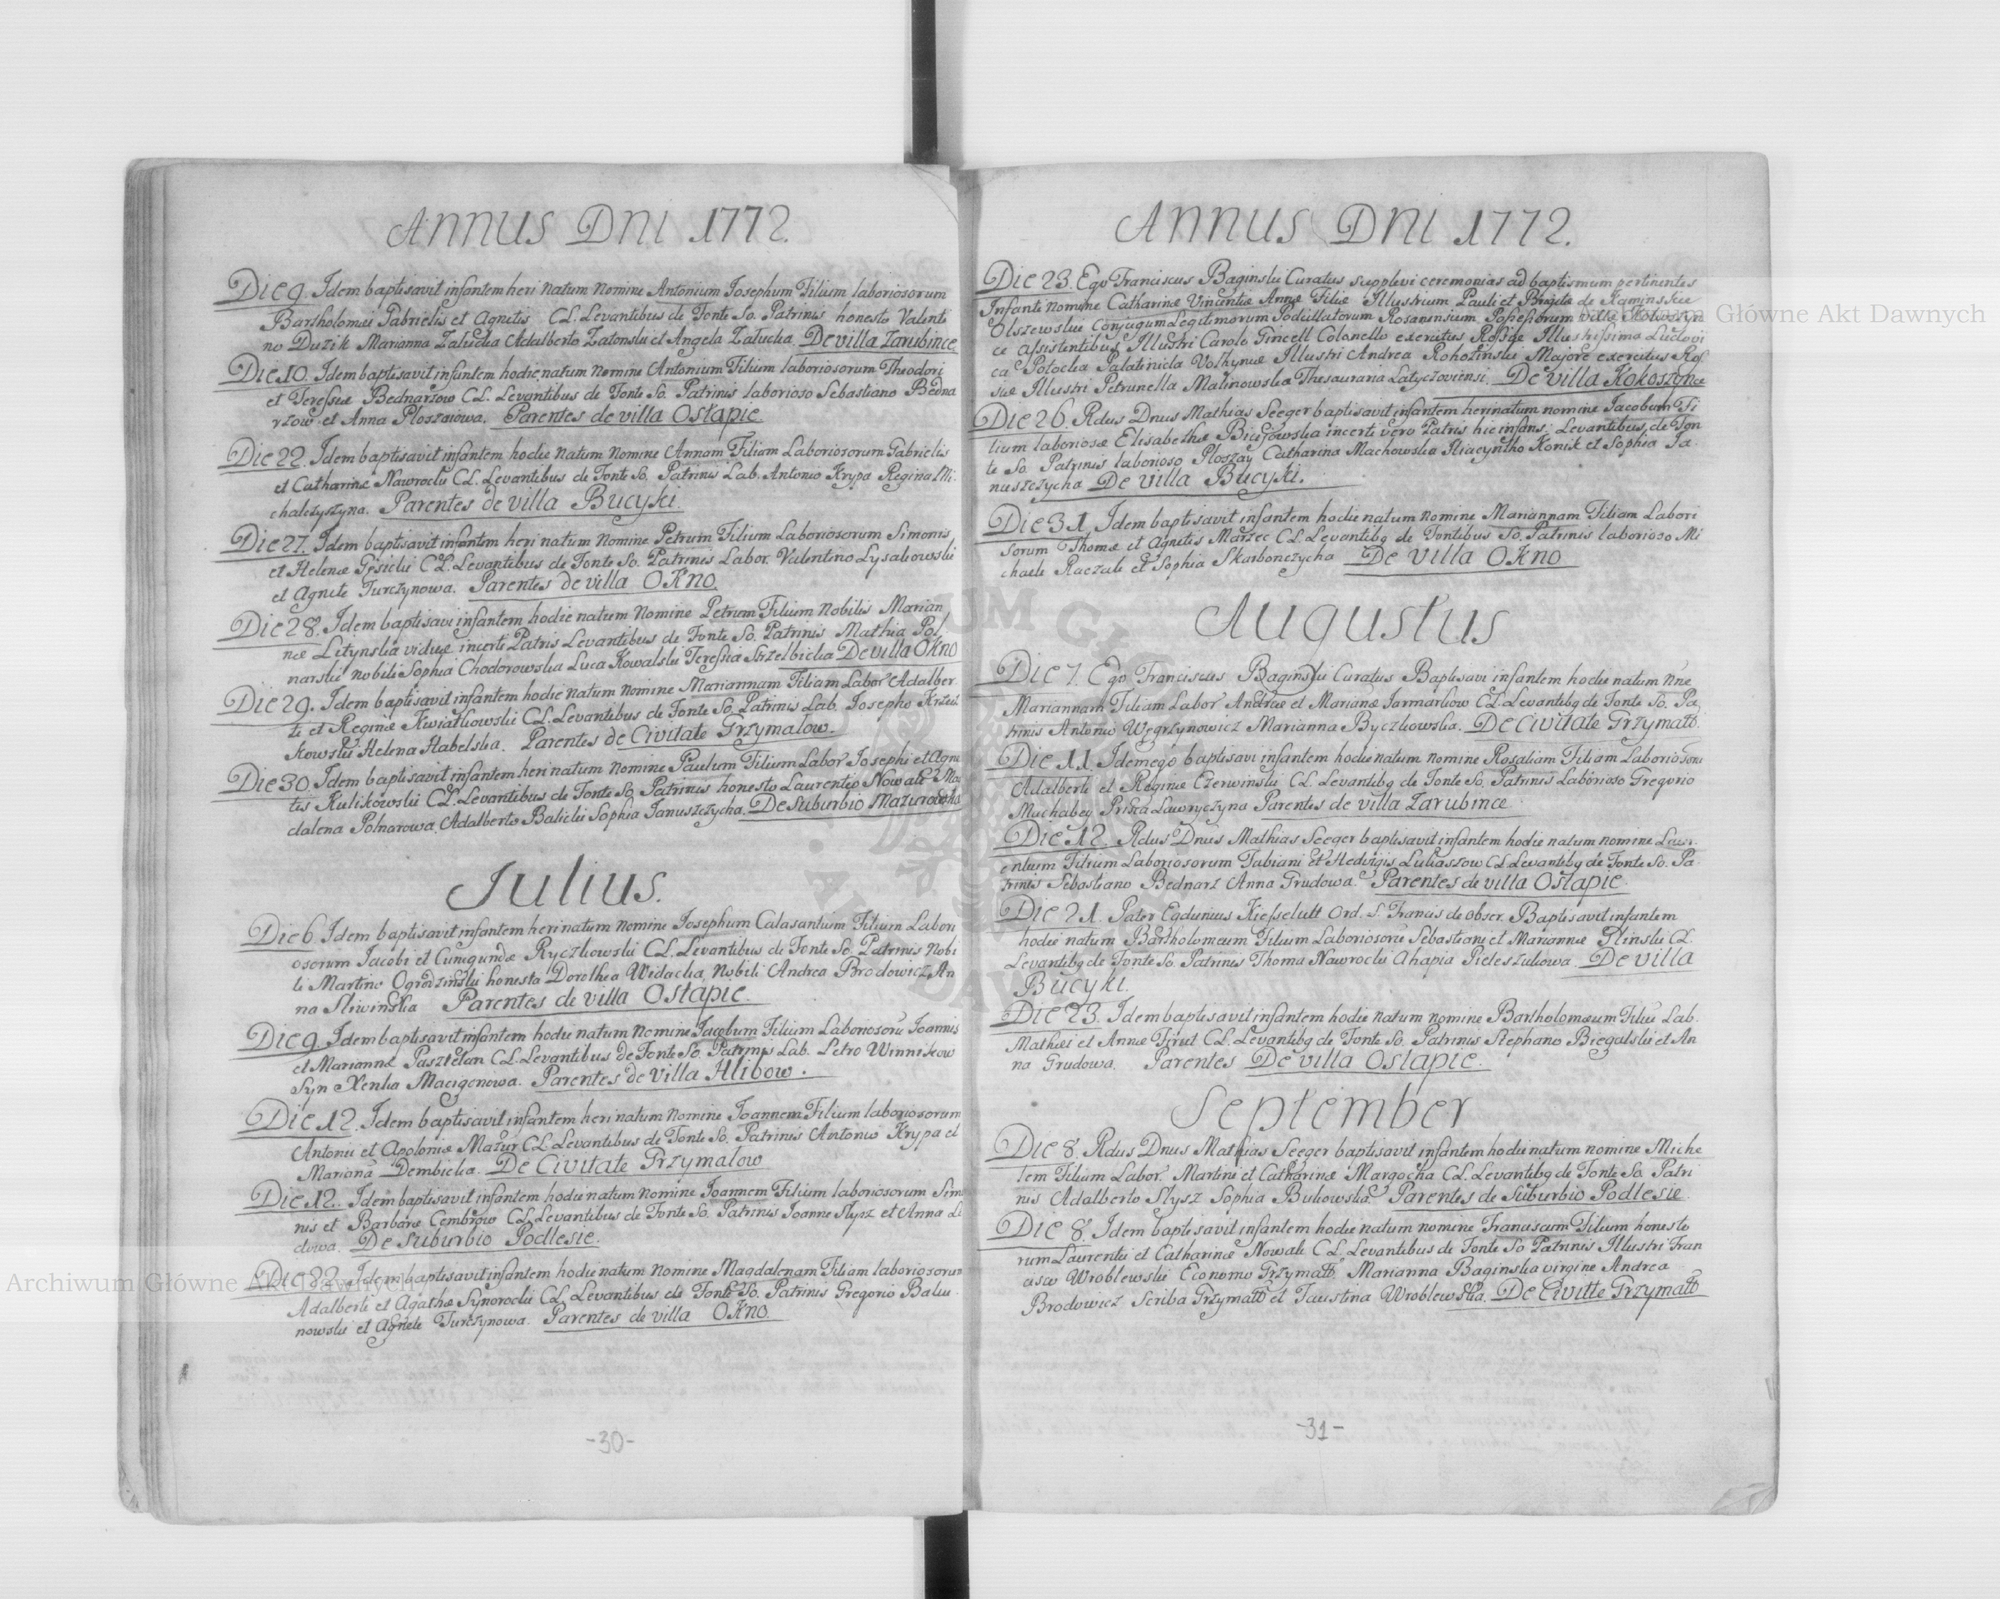 ANNUS DNI 1772.
Die 9. Idem baptisavit infantem heri natum Nomine Antonium Iosephum Filium laboriosorum
Bartholomei Gabrielis et Agnetis CL. Levantibus de Fonte So. Patrinis honesto Valenti
no Duzik Marianna Zalucka Adalberto Zatonski et Angela Zalucka. De villa Zarubince
Die 10. Idem baptisavit infantem hodie natum Nomine Antonium Filium laboriosorum Theodori
et Teressiæ Bednarzow CL. Levantibus de Fonte So. Patrinis laborioso Sebastiano Bedna
rzow et Anna Ploszaiowa. Parentes de villa Ostapie
Die 22. Idem baptisavit infantem hodie natum Nomine Annam Filiam Laboriosorum Gabrielis
et Catharinæ Nawrocki CL. Levantibus de Fonte So. Patrinis Lab. Antonio Krypa Regina Mi
chalczyszyna. Parentes de villa Bucyki
Die 27. Idem baptisavit infantem heri natum Nomine Petrum Filium Laboriosorum Simonis
et Helenæ Gęsicki CL. Levantibus de Fonte So. Patrinis Labor. Valentino Lysakowski
et Agnete Turczynowa. Parentes de villa OKno
Die 28. Idem baptisavi infantem hodie natum Nomine Petrum Filium Nobilis Marian
næ Letynska viduæ incerti Patris Levantibus de Fonte So. Patrinis Mathia Pol
narski nobili Sophia Chodorowska Luca Kowalski Teressia Strzelbicka De villa OKno
Die 29. Idem baptisavit infantem hodie natum Nomine Mariannam Filiam Labor Adalber
ti et Reginæ Kwiatkowski CL. Levantibus de Fonte So. Patrinis Lab. Iosepho Krzeci
kowski Helena Habelska. Parentes de Civitate Grzymalow.
Die 30. Idem baptisavit infantem heri natum Nomine Paulum Filium Labor Iosephi et Agne
tis Kulikowski CL. Levantibus de Fonte So. Patrinis honesto Laurentio Nowak Ma
dalena Polnarowa. Adalberto Balicki Sophia Januszczycha. De Suburbio Mazurowka
Julius.
Die 6 Idem baptisavit infantem heri natum Nomine Iosephum Calasantium Filium Labori
osorum Iacobi et Cunigundæ Ryczkowski CL. Levantibus de Fonte So. Patrinis Nobi
li Martino Ogrodzinski honesta Dorothea Widacka, Nobili Andrea Brodowicz An
na Sliwinska Parentes de villa Ostapie.
Die 9. Idem baptisavit infantem hodie natum Nomine Iacobum Filium Laboriosorū Ioannis
et Mariannæ Pasztelan CL. Levantibus de Fonte So. Patrinis Lab. Petro Winnikow
Syn Xenka Macigonowa. Parentes de villa Hlibow.
Die 12. Idem baptisavit infantem heri natum Nomine Ioannem Filium laboriosorum
Antonii et Apoloniæ Mazur CL Levantibus de Fonte So. Patrinis Antonio Krypa et
Marianā Dembicka. De Civitate Grzymalow
Die 12. Idem baptisavit infantem hodie natum Nomine Ioannem Filium laboriosorum Simo
nis et Barbaræ Cembrow CL. Levantibus de Fonte So. Patrinis Ioanne Slysz et Anna
dowa. De Suburbio Podlesie.
Die 22. Idem baptisavit infantem hodie natum Nomine Magdalenam Filiam laboriosorum
Adalberti et Agathæ Synorocki CL. Levantibus de Fonte So. Patrinis Gregorio Baliu
nowski et Agnete Turczynowa. Parentes de villa OKno.
-30-
ANNUS DNI 1772.
Die 23. Ego Franciscus Baginski Curatus supplevi ceremonias ad baptismum pertinentes
Infanti nomine Catharinæ Vincentiæ Annæ Filiæ Illustrium Pauli et Brigidæ de Kaminskie
Olszewskie Conjugum Legitimorum Podcillatorum Rosanensium Possessorum villæ Kokoszyn
ce assistentibus Illustri Carolo Fincell Colonello exercitus Rossiæ Illustrissima Ludovi
ca Potocka Palatinida Volhyniæ Illustri Andrea Rohozinski Majore exercitus Ros
siæ Illustri Petrunella Malinowska Thesauraria Latyczoviensi. De villa Kokoszynce
Die 26. Rdus Dnus Mathias Seeger baptisavit infantem heri natum nomine Iacobum Fi
lium laboriosæ Elisabethæ Bieżowska incerti vero Patris hic infans; Levantibus de Fon
te So. Patrinis laborioso Ploszay Catharina Machowska Hiacyntho Konik et Sophia Ja
nuszczycha De villa Bucyki.
Die 31. Idem baptisavit infantem hodie natum nomine Mariannam Filiam Labori
sorum Thomæ et Agnetis Marzec CL. Levantibq de Fontibus So. Patrinis laborioso Mi
chaele Raczak et Sophia Skarbonczycha De villa OKno
Augustus
Die 7. Ego Franciscus Baginski Curatus Baptisavi infantem hodie natum Nne
Mariannam Filiam Labor Andreæ et Marianæ Jarmarkow CL. Levantibq de Fonte So. Pa
trinis Antonio Węgrzynowicz Marianna Byczkowska. De Civitate Grzymałł.
Die 11 Idem ego baptisavi infantem hodie natum nomine Rosaliam Filiam Laboriosoru
Adalberti et Reginæ Czerwinski CL. Levantibq de Fonte So. Patrinis Laborioso Gregorio
Muchabey Prisca Lawryczyna Parentes de villa Zarubince
Die 12. Rdus Dnus Mathias Seeger baptisavit infantem hodie natum nomine Laur
entium Filium Laboriosorum Fabiani et Hedvigis Lukaszow CL Levantibq de Fonte So. Pa
trinis Sebastiano Bednarz Anna Grudowa. Parentes de villa Ostapie.
Die 21. Pater Egdunius Kiesselutt Ord. S. Francis de Obser. Baptisavit infantem
hodie natum Bartholomeum Filium Laboriosorū Sebastiani et Mariannæ Glinski CL.
Levantibq de Fonte So. Patrinis Thoma Nawrocki Ahapia Pieleszukowa. De villa
Bucyki.
Die 23. Idem baptisavit infantem hodie natum nomine Bartholomæum Filiū Lab.
Mathiei et Annæ Firut CL. Levantibq de Fonte So. Patrinis Stephano Biegalski et An
na Grudowa. Parentes De villa Ostapie.
September
Die 8. Rdus Dnus Mathias Seeger baptisavit infantem hodie natum nomine Micha
lem Filium Labor. Martini et Catharinæ Margocha CL. Levantibq de Fonte So. Patri
nis Adalberto Slysz Sophia Bukowska. Parentes de Suburbio Podlesie
Die 8. Idem baptisavit infantem hodie natum nomine Franciscum Filium honesto
rum Laurentii et Catharinæ Nowak CL. Levantibus de Fonte So Patrinis Illustri Fran
cisco Wroblewski Economo Grzymałł. Marianna Baginska virgine Andrea
Brodowicz Scriba Grzymałł et Faustina Wroblewska. De Civitte Grzymałł
-31-
Archiwum Główne Akt Dawnych
Główne Akt Dawnych